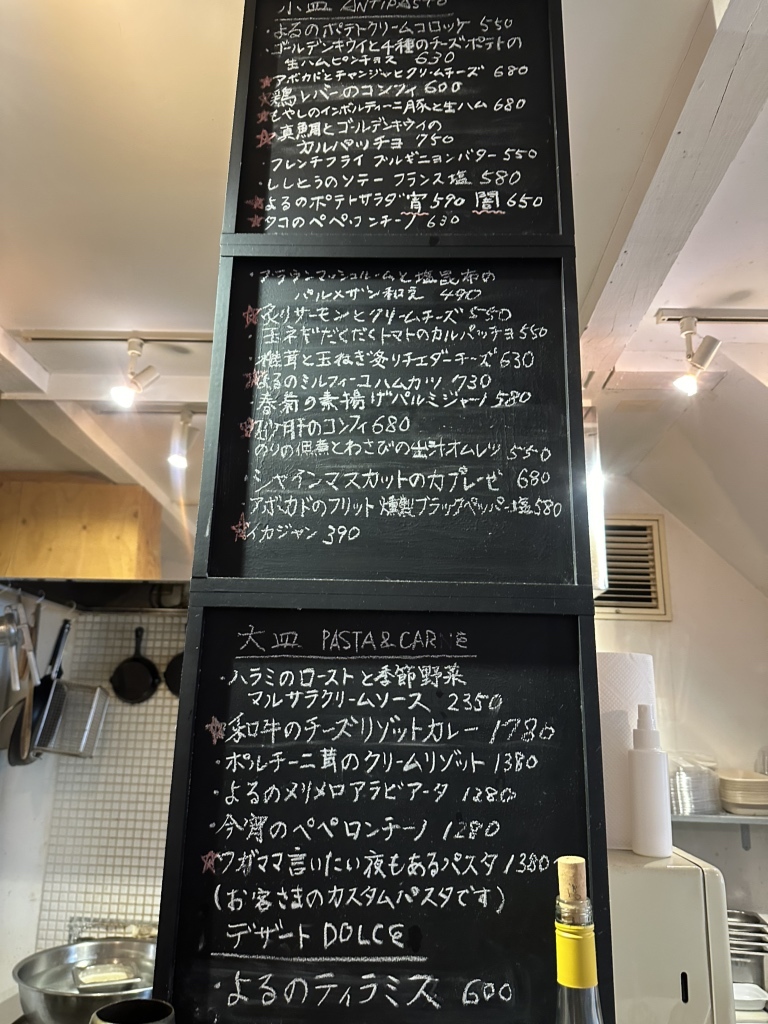 小皿 ANTIPASTO
・よるのポテトクリームコロッケ 550
・ゴールデンキウイと4種のチーズポテトの
生ハムピンチョス 630
★アボカドとチャンジャとクリームチーズ 680
★鶏レバーのコンフィ 600
★もやしのインボルティーニ豚と生ハム 680
★真鯛とゴールデンキウイの
カルパッチョ 750
・フレンチフライ ブルギニョンバター 550
・ししとうのソテー フランス塩 580
★よるのポテトサラダ 宵590 闇650
★タコのペペロンチーノ 630
・ブラウンマッシュルームと塩昆布の
パルメザン和え 490
★炙りサーモンとクリームチーズ 550
・玉ネギだくだくトマトのカルパッチョ 550
・椎茸と玉ねぎ炙りチェダーチーズ 630
★よるのミルフィーユハムカツ 730
春菊の素揚げパルミジャーノ 580
★砂肝のコンフィ 680
・のりの佃煮とわさびの出汁オムレツ 550
・シャインマスカットのカプレーゼ 680
・アボカドのフリット 燻製ブラックペッパー塩 580
★イカジャン 390
大皿 PASTA&CARNE
・ハラミのローストと季節野菜
マルサラクリームソース 2350
★和牛のチーズリゾットカレー 1780
・ポルチーニ茸のクリームリゾット 1380
・よるのメリメロアラビアータ 1280
・今宵のペペロンチーノ 1280
★ワガママ言いたい夜もあるパスタ 1380
(お客さまのカスタムパスタです)
デザート DOLCE
・よるのティラミス 600